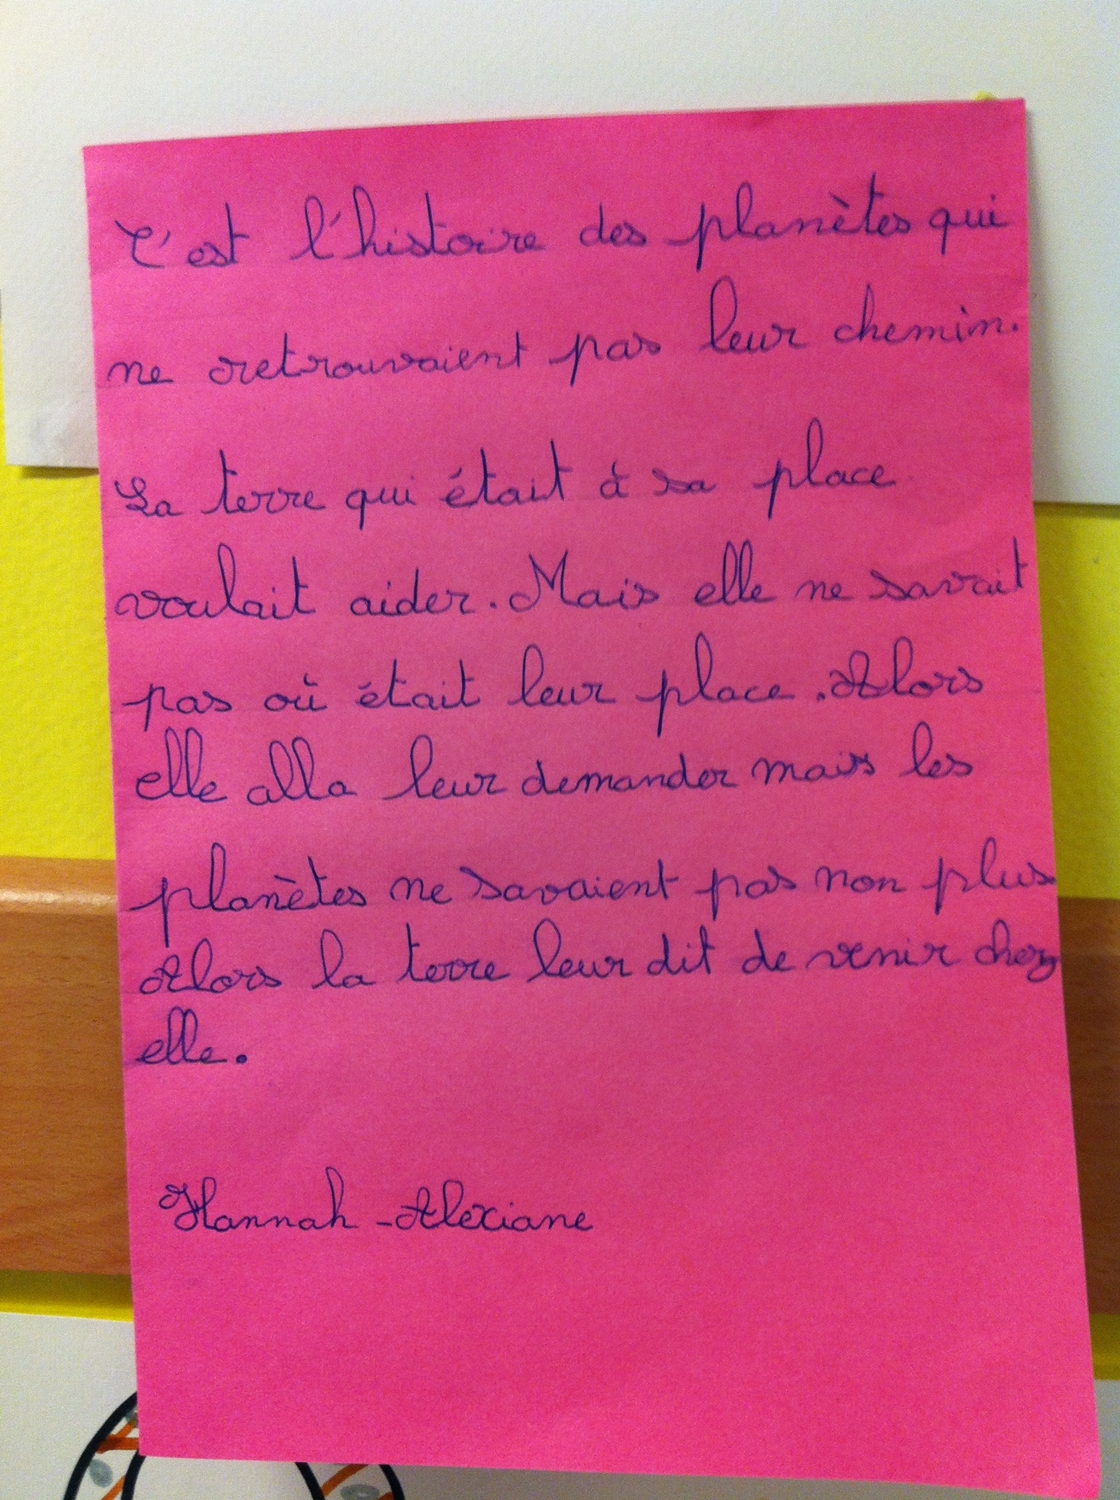 C'est l'histoire des planètes qui
ne retrouvaient pas leur chemin.
La terre qui était à sa place
voulait aider. Mais elle ne savait
pas où était leur place. Alors
elle alla leur demander mais les
planètes ne savaient pas non plus
Alors la terre leur dit de venir chez
elle.
Hannah - Alexiane